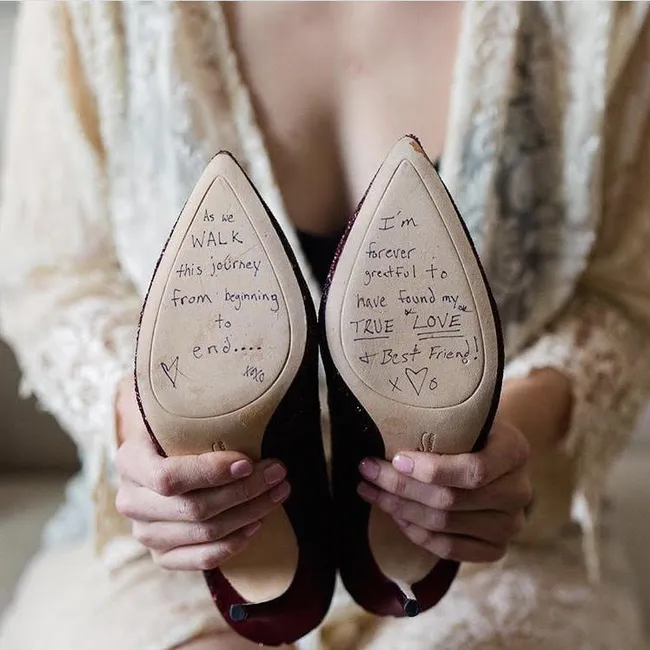 As we
WALK
this journey
from beginning
to
end....
xoxo
I'm
forever
greatful to
have found my
TRUE LOVE
+ Best Friend!
x♡o